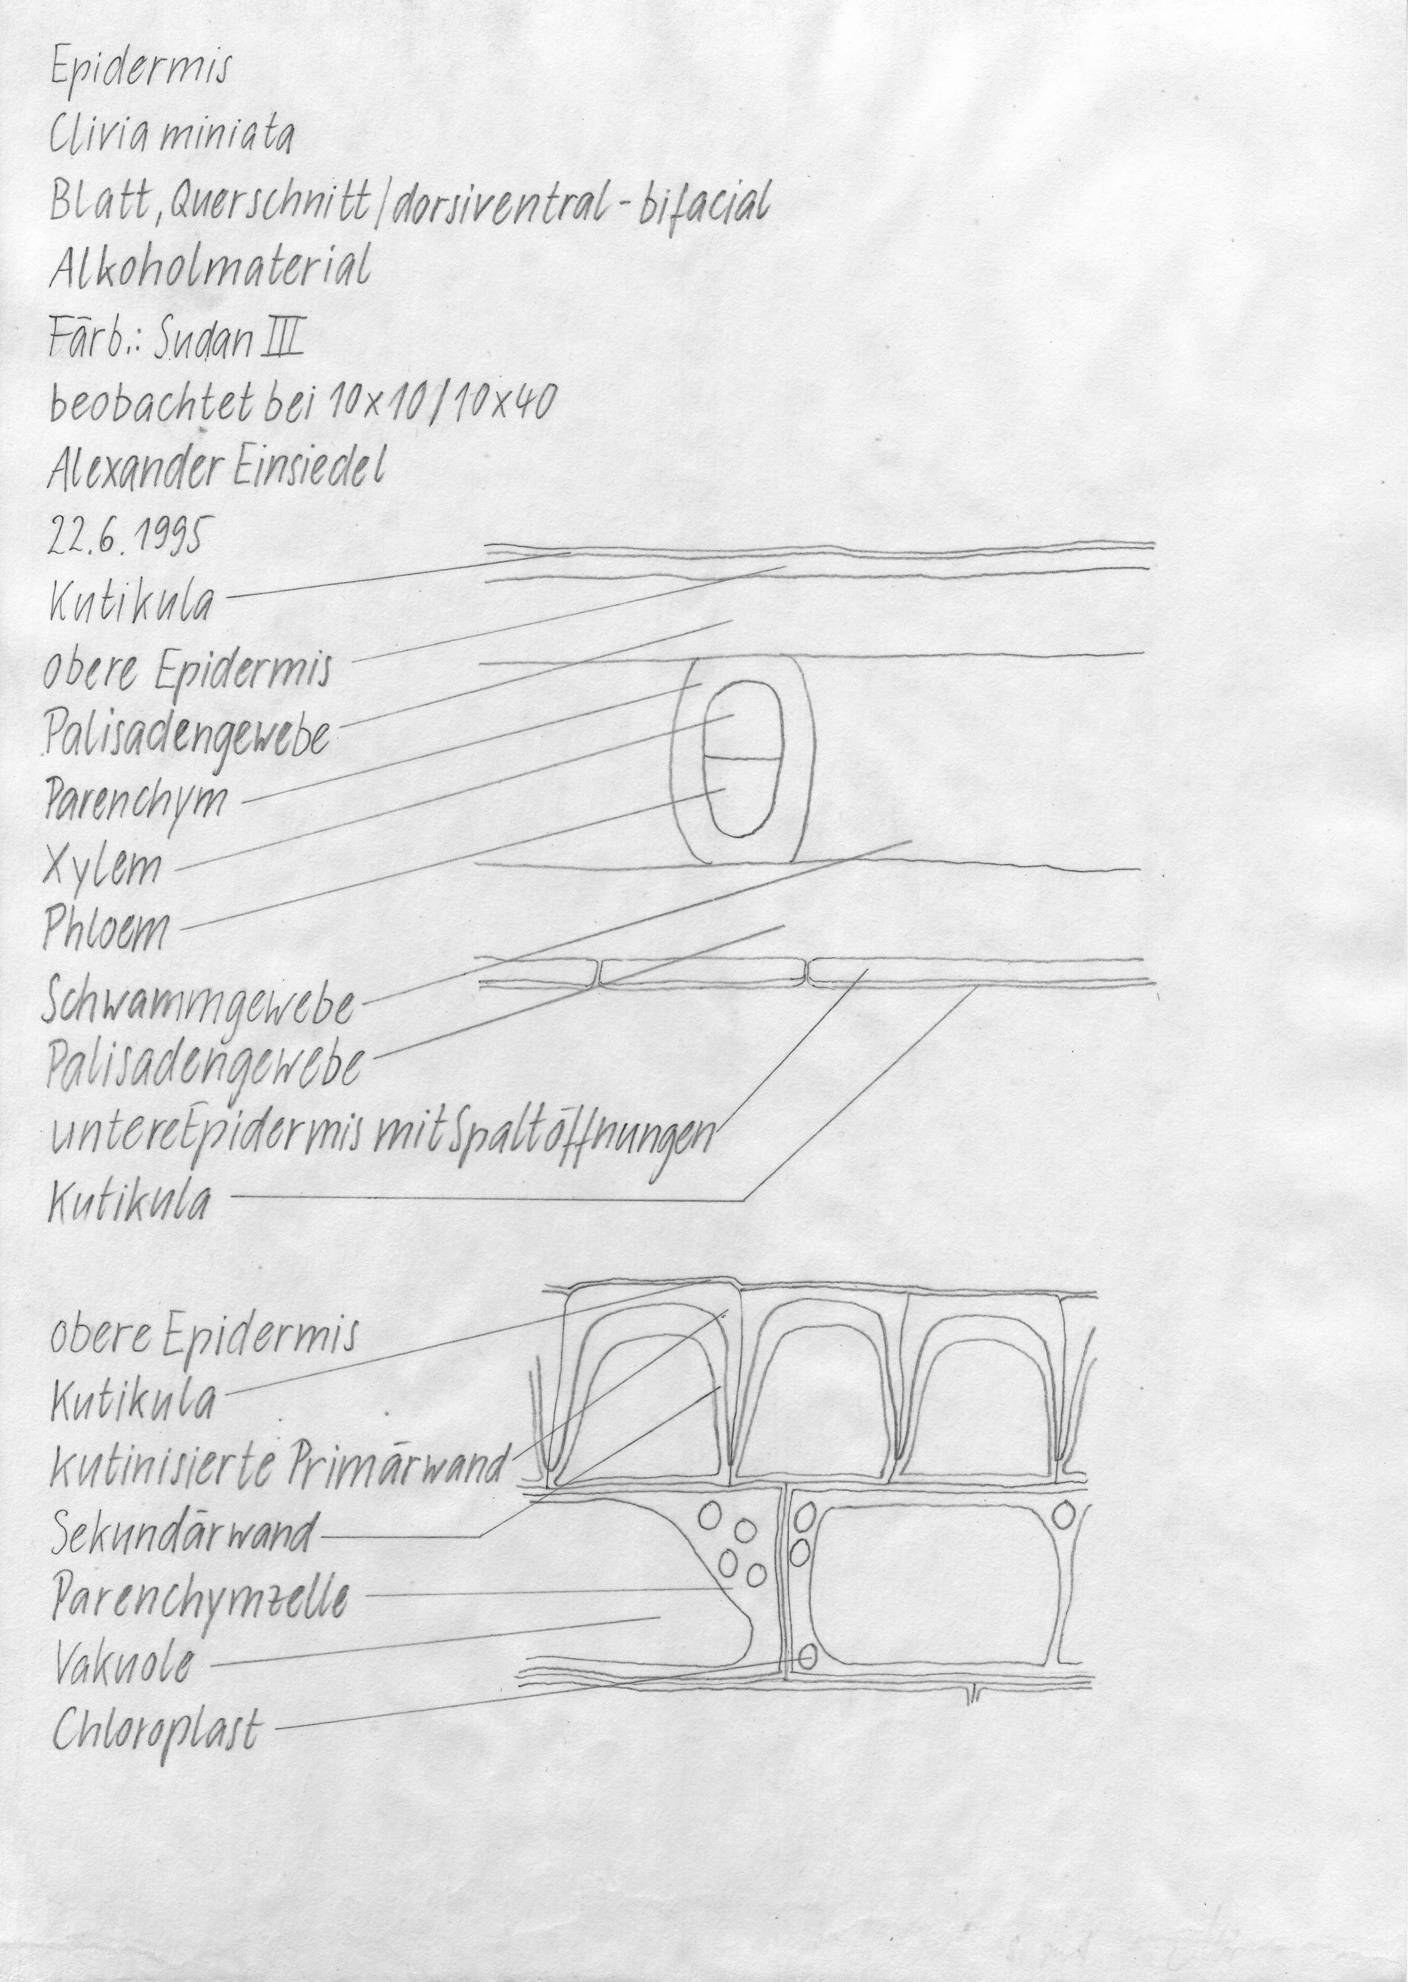 Epidermis
Clivia miniata
Blatt, Querschnitt/dorsiventral-bifacial
Alkoholmaterial
Färb.: Sudan III
beobachtet bei 10x10/10x40
Alexander Einsiedel
22.6.1995
Kutikula
obere Epidermis
Palisadengewebe
Parenchym
Xylem
Phloem
Schwammgewebe
Palisadengewebe
untere Epidermis mit Spaltöffnungen
Kutikula
obere Epidermis
Kutikula
kutinisierte Primärwand
Sekundärwand
Parenchymzelle
Vakuole
Chloroplast